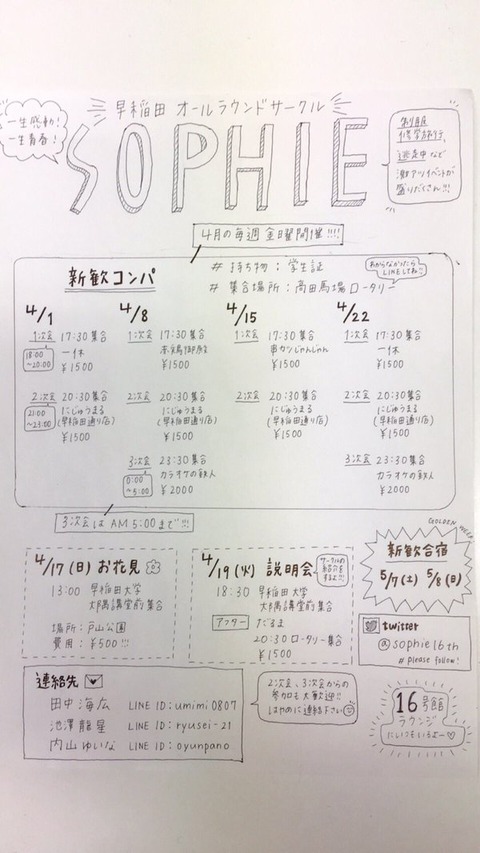 一生感動!
一生青春!
早稲田 オールラウンドサークル
SOPHIE
制服
修学旅行、
逃走中など
激アツイベントが
盛りだくさん!!!
4月の毎週金曜開催!!!!
新歓コンパ
# 持ち物:学生証
# 集合場所:高田馬場ロータリー
わからなかったら
LINEしてね!!
4/1
1次会 17:30集合
18:00〜20:00
一休
¥1500
2次会 20:30集合
21:00〜23:00
にじゅうまる
(早稲田通り店)
¥1500
4/8
1次会 17:30集合
赤鶏御殿
¥1500
2次会 20:30集合
にじゅうまる
(早稲田通り店)
¥1500
3次会 23:30集合
0:00〜5:00
カラオケの鉄人
¥2000
4/15
1次会 17:30集合
串カツじゃんじゃん
¥1500
2次会 20:30集合
にじゅうまる
(早稲田通り店)
¥1500
4/22
1次会 17:30集合
一休
¥1500
2次会 20:30集合
にじゅうまる
(早稲田通り店)
¥1500
3次会 23:30集合
カラオケの鉄人
¥2000
3次会はAM5:00まで!!!
4/17(日) お花見
13:00 早稲田大学
大隈講堂前集合
場所:戸山公園
費用:¥500!!!
4/19(火) 説明会
サークルの
紹介を
するよ!!!
18:30 早稲田大学
大隈講堂前集合
アフター だるま
20:30ロータリー集合
¥1500
GOLDEN WEEK
新歓合宿
5/7(土) 5/8(日)
twitter
@sophie16th
# please follow!
連絡先
田中海広 LINE ID:umimi0807
池澤龍星 LINE ID:ryusei-21
内山ゆいな LINE ID:oyunpano
2次会、3次会からの
参加も大歓迎!!
はやめに連絡下さい
16号館
ラウンジ
にいつもいるよー♡